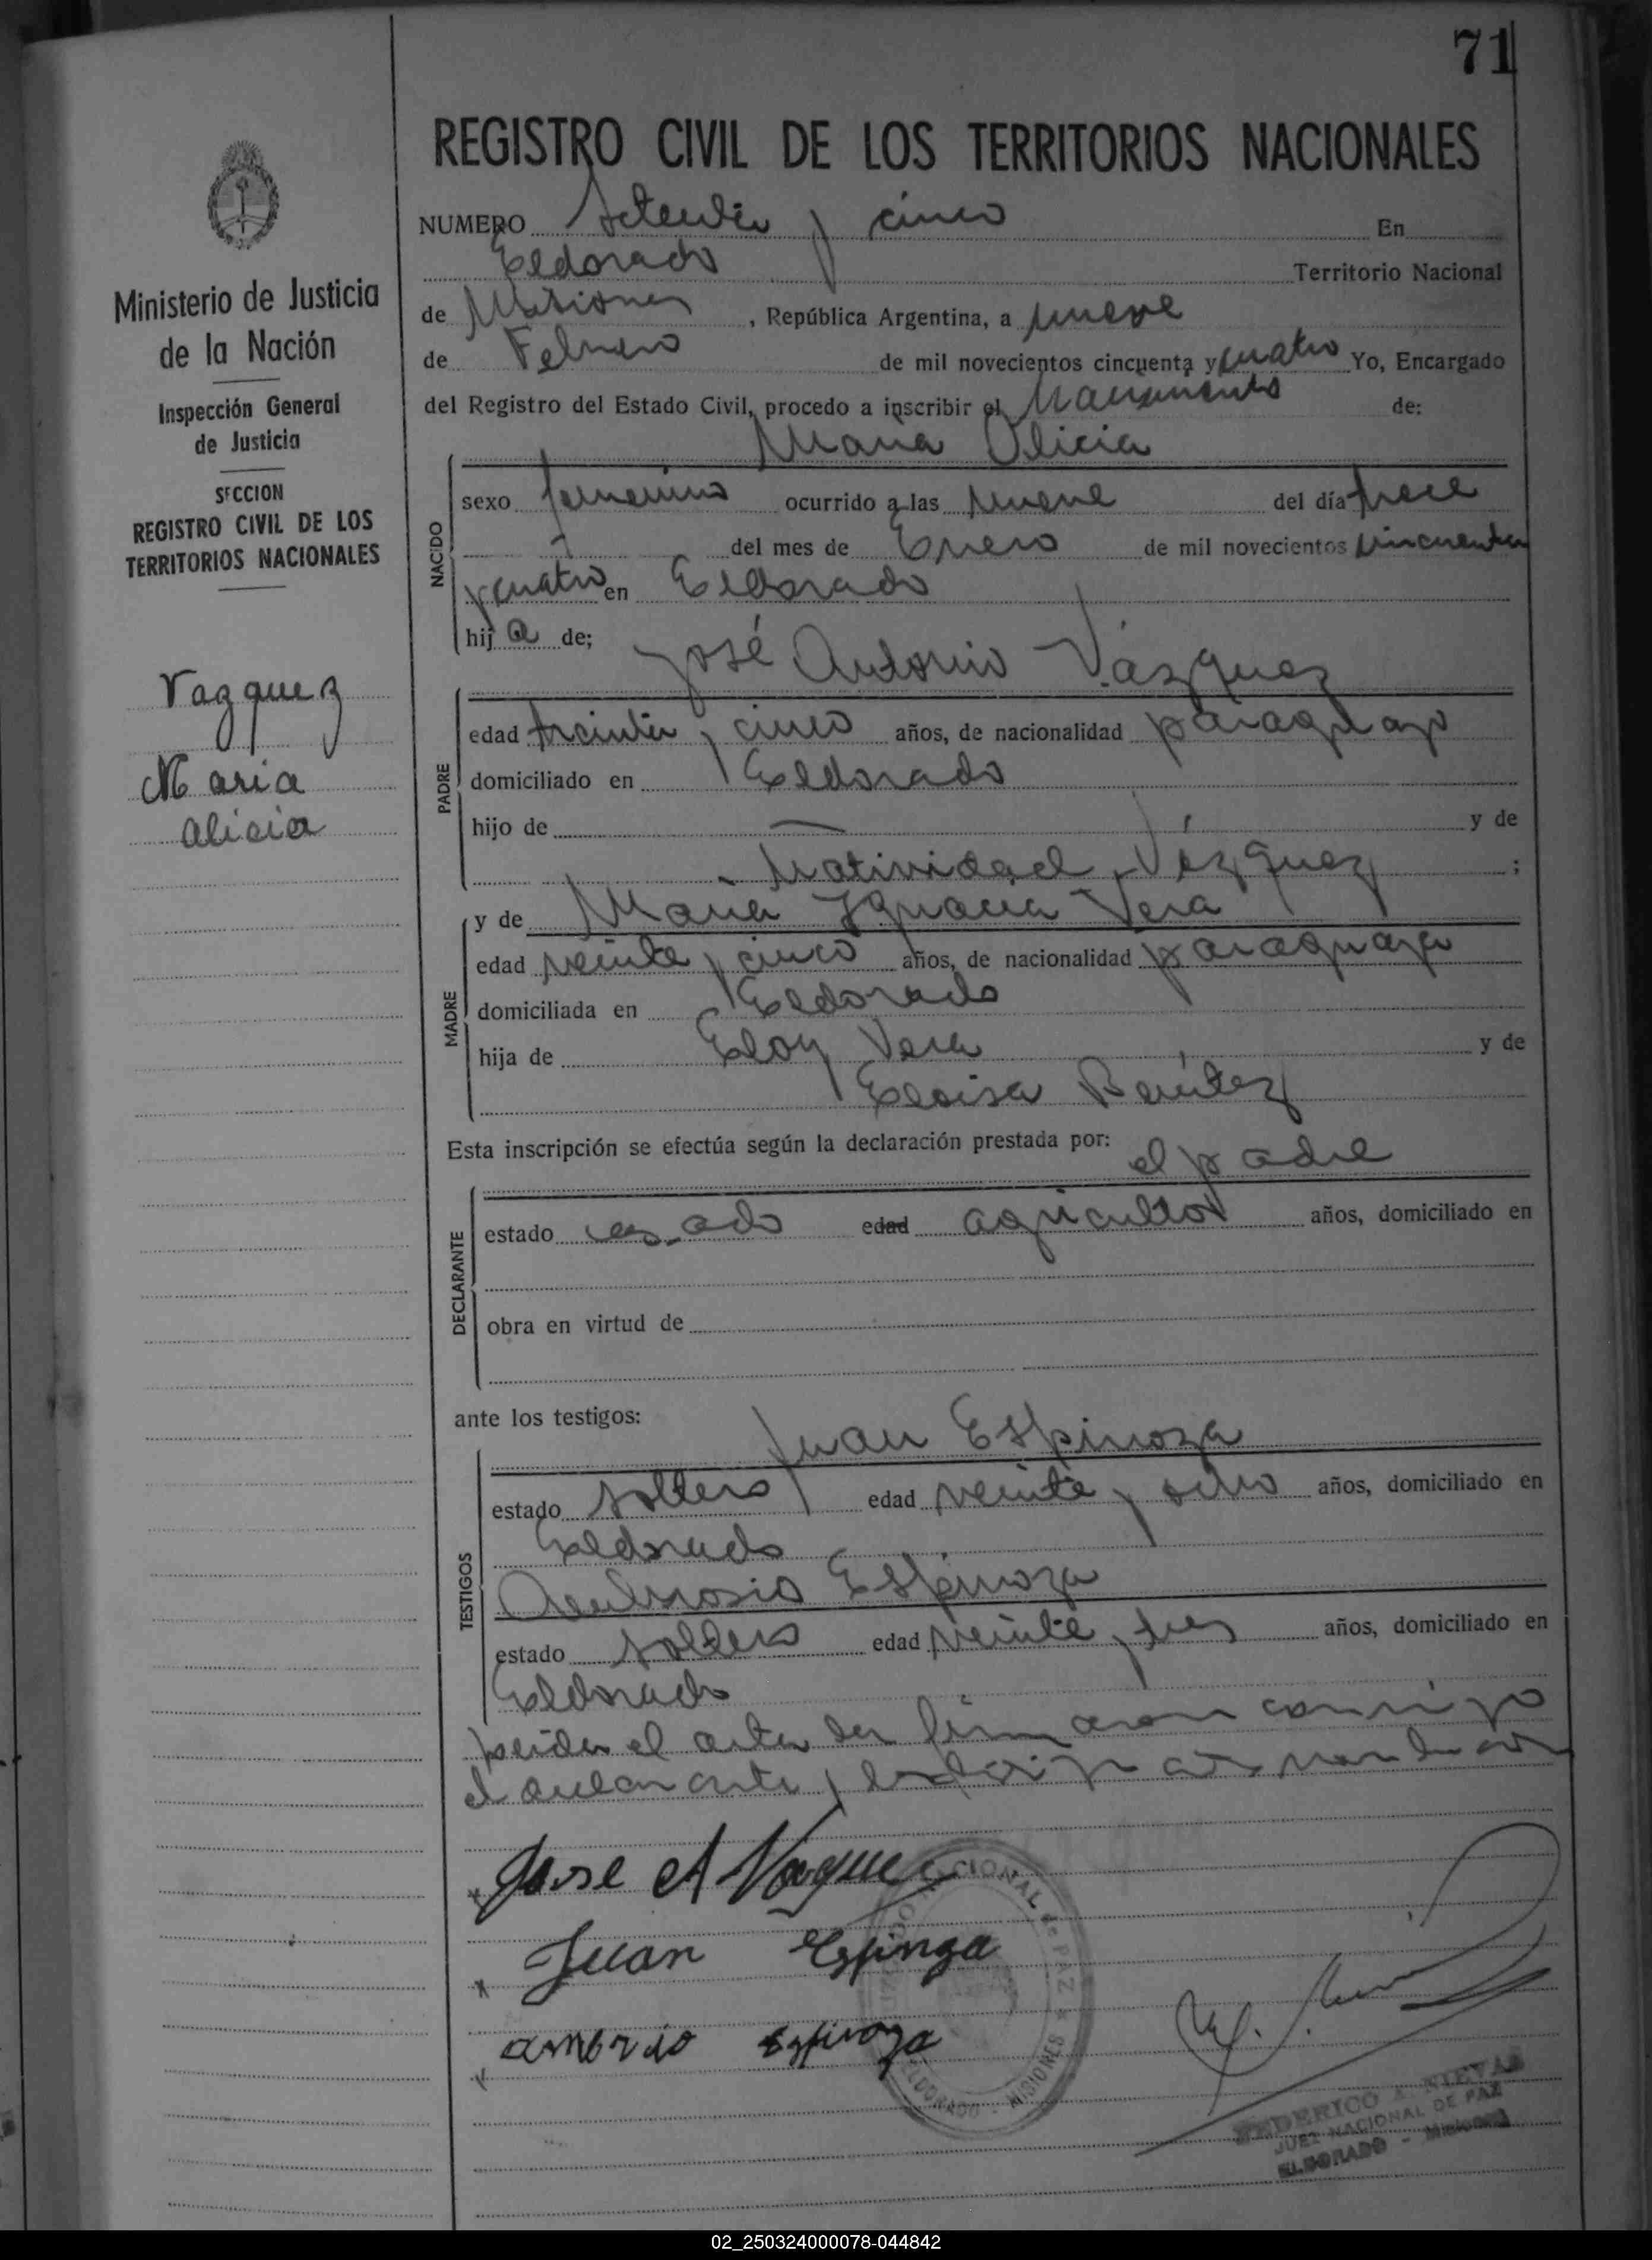 71
REGISTRO CIVIL DE LOS TERRITORIOS NACIONALES
NUMERO setenta y cinco En
Eldorado Territorio Nacional
de Misiones, República Argentina, a nueve
de Febrero de mil novecientos cincuenta y cuatro Yo, Encargado
del Registro del Estado Civil, procedo a inscribir el Nacimiento de:
Maria Alicia
sexo femenino ocurrido a las nueve del día trece
del mes de Enero de mil novecientos cincuenta
y cuatro en Eldorado
NACIDO
hija de;
José Antonio Vázquez
edad treinta y cinco años, de nacionalidad paraguayo
domiciliado en Eldorado
PADRE
hijo de — y de
Natividad Vázquez ;
y de Maria Ignacia Vera
edad veinte y cinco años, de nacionalidad paraguaya
domiciliada en Eldorado
MADRE
hija de Eloy Vera y de
Eloisa Benítez
Esta inscripción se efectúa según la declaración prestada por:
el padre
estado casado edad agricultor años, domiciliado en
DECLARANTE
obra en virtud de
ante los testigos:
Juan Espinoza
estado soltero edad veinte y ocho años, domiciliado en
Eldorado
TESTIGOS
Ambrosio Espinoza
estado soltero edad veinte y tres años, domiciliado en
Eldorado
leida el acta la firmaron conmigo
el declarante y
Jose A Vaquez
Juan Espinoza
Espinoza
Ministerio de Justicia
de la Nación
Inspección General
de Justicia
SECCION
REGISTRO CIVIL DE LOS
TERRITORIOS NACIONALES
Vazquez
Maria
Alicia
NACIONAL de PAZ
ELDORADO - MISIONES
FEDERICO A. NIEVAS
JUEZ NACIONAL DE PAZ
ELDORADO - Misiones
02_250324000078-044842